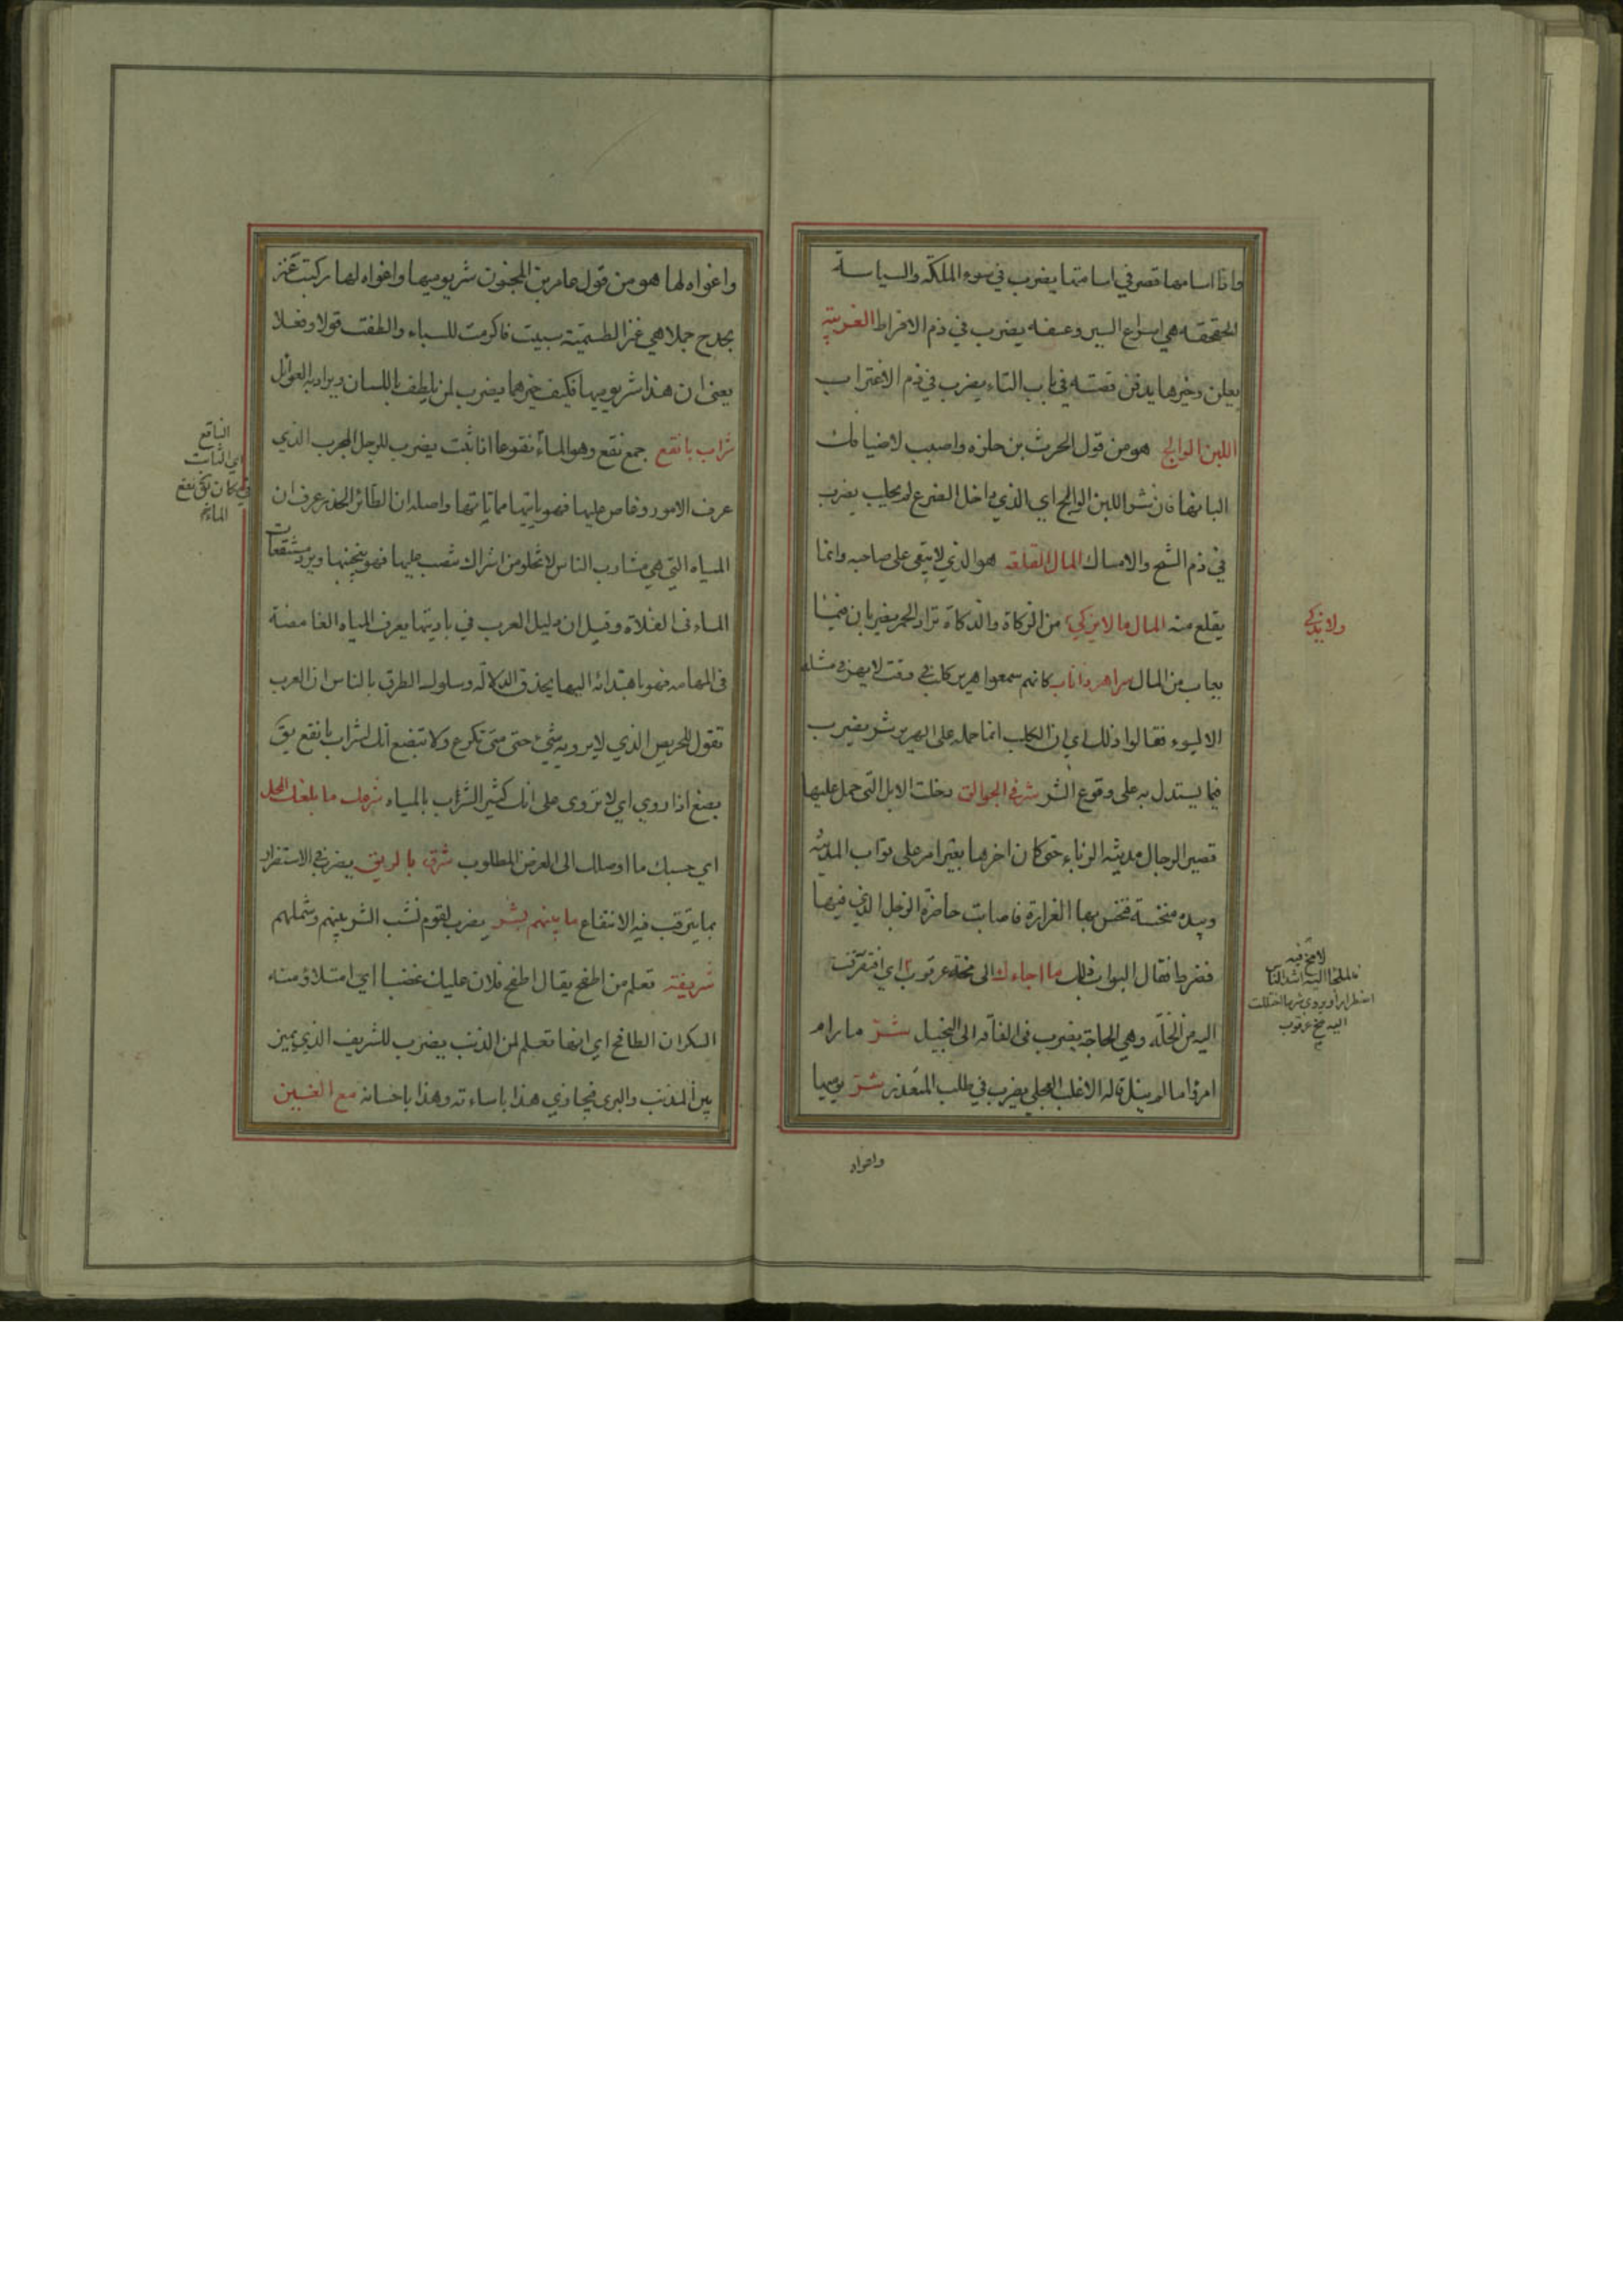 واذا اسامها قصر في اسامتها يضرب في سوء الملكة والسياسة
الحقحقة هي اسراع السير وعنفه يضرب في ذم الافراط الغريبة
يعلن وخيرها يدفن قصته في باب التاء يضرب في ذم الاغتراب
اللبن الوالج هو من قول الحرث بن حلزه واصبب لاضيافك
البانها فان شر اللبن الوالج اي الذي داخل الضرع لم يحلب يضرب
في ذم الشح والامساك المال القلعة هو الذي لا يبقى على صاحبه وانما
يقلع منه المال ما لا يزكي من الزكاة والذكاة تراد الحمر يضربان فيما
يعاب من المال شر اهر ذا ناب كانهم سمعوا هرير كلب في وقت لا يهر في مثله
الا لسوء فقالوا ذلك اي ان الكلب انما حمله على الهرير شر يضرب
فيما يستدل به على وقوع الشر شر في الجوالق دخلت الابل التي حمل عليها
قصير الرجال مدينة الزباء حتى كان اخرها بعير امر على بواب المدينة
وبيده منخسة فنخس بها الغرارة فاصابت خاصرة الرجل الذي فيها
فضرط فقال البواب ذلك ما اجاءك الى مخة عرقوب اي افتقرت
اليه من الخلة وهي الحاجة يضرب في الفاقه الى البخيل شر ما رام
امرؤ ما لم ينل قاله الاغلب العجلي يضرب في طلب المتعذر شر يوميها
ولا يذكي
لا مخ فيه
اضطرارا ويروى شر ما اختللت
اليه مخ عرقوب
واغواه
واغواه لها هو من قول عامر بن المجنون شر يوميها واغواه لها ركبت عنز
بحدج جملا هي عنز الطسمية سبيت فاكرمت للسباء والطفت قولا وفعلا
يعني ان هذا شر يوميها فكيف خيرهما يضرب لمن يلطف باللسان ويراد به الغوائل
شراب بانقع جمع نقع وهو الماء نقوعا اذا ثبت يضرب للرجل المجرب الذي
عرف الامور وغاص عليها فهو ياتيها مما ياتيها واصله ان الطائر الحذر عرف ان
المياه التي هي مشارب الناس لا تخلو من اشراك تنصب عليها فهو يتجنبها ويرد مستنقعات
الماء في الفلاة وقيل ان دليل العرب في باديتها يعرف المياه الغامضة
في المهامه فهو باهتدائه اليها يحذق الدلالة وسلوك الطرق بالناس ان العرب
تقول للحريص الذي لا يرويه شيء حتى متى تكرع ولا تبضع انك لشراب بانقع يق
بضع اذا روي اي لا تروى على انك كثير الشراب بالمياه شرعك ما بلغك المحل
اي حسبك ما اوصلك الى الغرض المطلوب شرق بالريق يضرب في الاستضرار
بما يترقب فيه الانتفاع ما بينهم بشر يضرب لقوم نشب الشر بينهم وشملهم
شريفة تعلم من اطفح يقال اطفح فلان عليك غضبا اي امتلأ ومنه
السكران الطافح اي انها تعلم لمن الذنب يضرب للشريف الذي يميز
بين المذنب والبري فيجازي هذا باساءته وهذا باحسانه مع الغبين
الناقع
اي الثابت
في مكان يق نقع
الماء